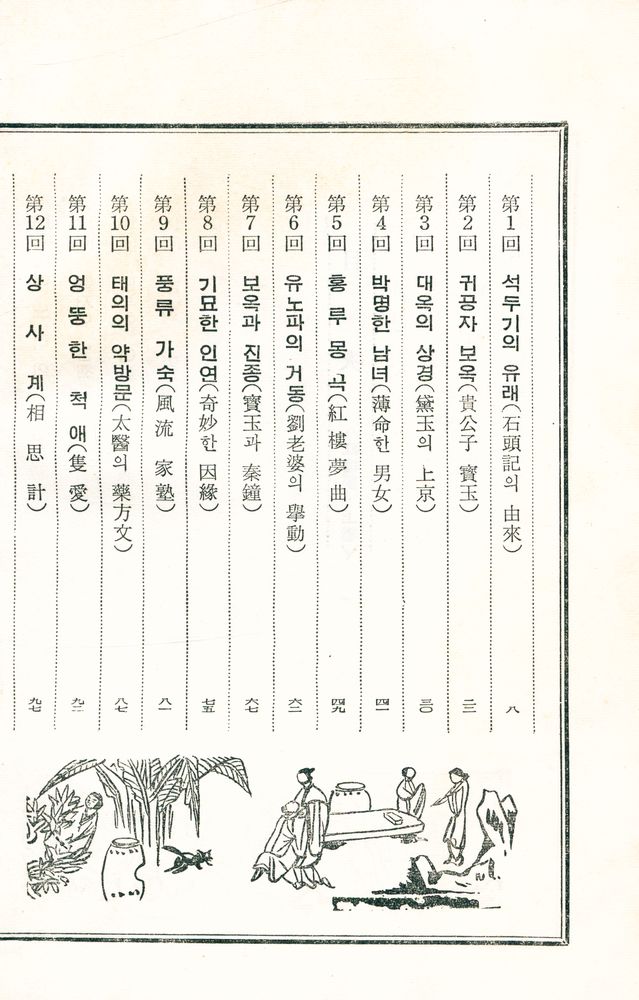 第1回 석두기의 유래(石頭記의 由來) 八
第2回 귀공자 보옥(貴公子 寶玉) 二二
第3回 대옥의 상경(黛玉의 上京) 三〇
第4回 박명한 남녀(薄命한 男女) 四一
第5回 홍루몽곡(紅樓夢曲) 四九
第6回 유노파의 거동(劉老婆의 擧動) 六二
第7回 보옥과 진종(寶玉과 秦鐘) 六七
第8回 기묘한 인연(奇妙한 因緣) 七五
第9回 풍류 가숙(風流 家塾) 八一
第10回 태의의 약방문(太醫의 藥方文) 八七
第11回 엉뚱한 척애(隻愛) 九二
第12回 상사계(相思計) 九七